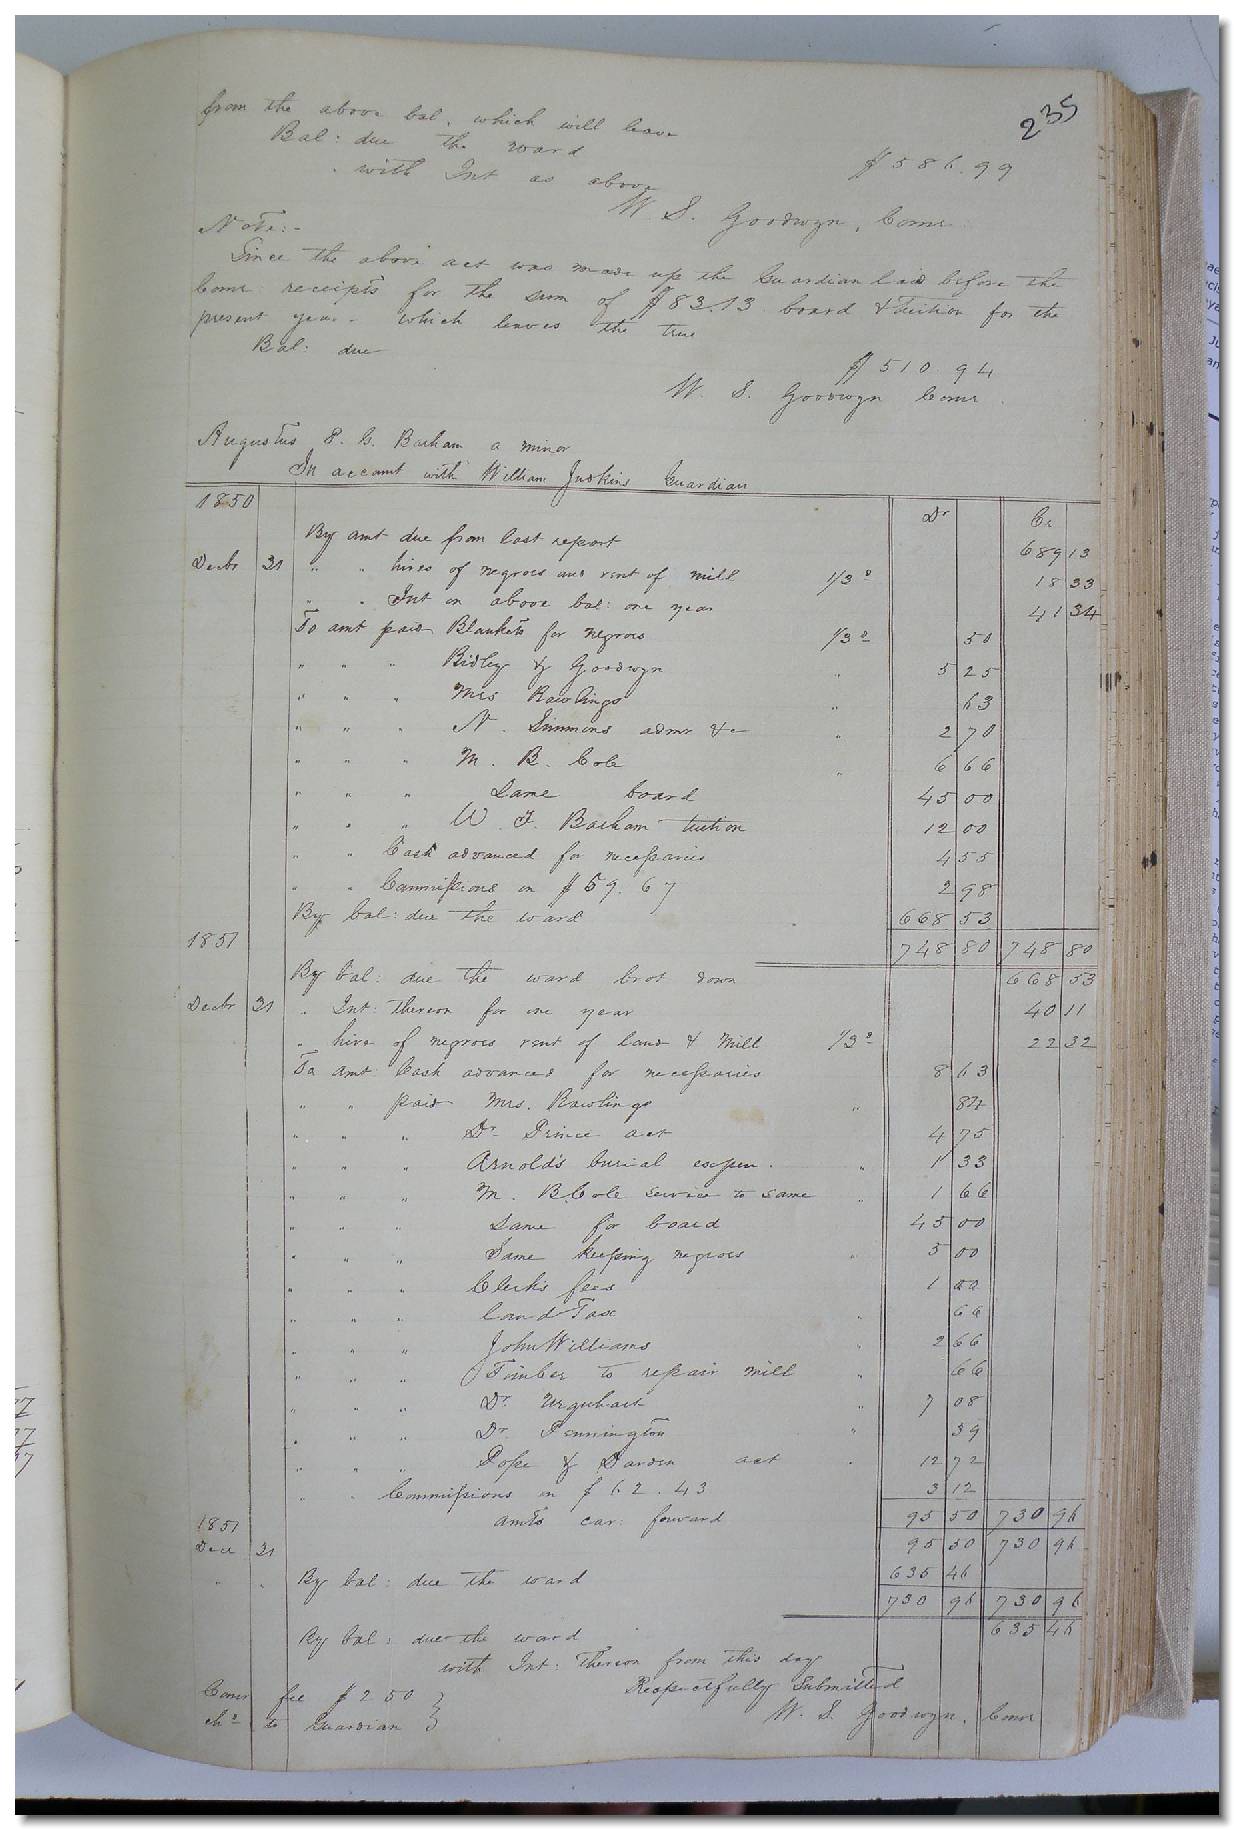 235
from the above bal. which will leave
Bal: due the ward $586.99
with Int as above
W. S. Goodwyn, Comr
Note:-
Since the above act was made up the Guardian laid before the
Comr receipts for the sum of $83.13 board & tuition for the
present year - which leaves the true
Bal: due $510 94
W. S. Goodwyn Comr
Augustus B. Barham a minor
In account with William Judkins Guardian
1850 Dr Cr
By amt due from last report 689 13
Decbr 31 " " hires of negroes and rent of mill 1/3d 18 33
" " Int on above bal: one year 41 34
To amt paid Blankets for negroes 1/3d 50
" " " Ridley & Goodwyn " 5 25
" " " Mrs Rawlings " 63
" " " N. Simmons admr &c " 2 70
" " " M. B. Cole " 6 66
" " " Same board 45 00
" " " W. J. Barham tuition 12 00
" " Cash advanced for necessaries 4 55
" " Commissions on $59.67 2 98
By bal: due the ward 668 53
1851 748 80 748 80
By bal: due the ward brot down 668 53
Decbr 31 " Int: thereon for one year 40 11
" hire of negroes rent of land & mill 1/3d 22 32
To amt Cash advanced for necessaries 8 63
" " paid Mrs. Rawlings " 84
" " " Dr. Prince act 4 75
" " " Arnold's burial expen. " 1 33
" " " M. B. Cole service to same " 1 66
" " " Same for board 45 00
" " " Same keeping negroes " 5 00
" " " Clerk's fees 1 00
" " " Land Tax " 66
" " " John Williams " 2 66
" " " Timber to repair mill " 66
" " " Dr. Urquhart " 7 08
" " " Dr. Pennington " 39
" " " Pope & Darden act " 12 72
" " Commissions on $62.43 3 12
1851 amts car: forward 95 50 730 96
Dece 31 95 50 730 96
" " By bal: due the ward 635 46
730 96 730 96
By bal: due the ward 635 46
with Int: thereon from this day
Respectfully Submitted
Comr fee $2 50 }
chd to Guardian } W. S. Goodwyn, Comr